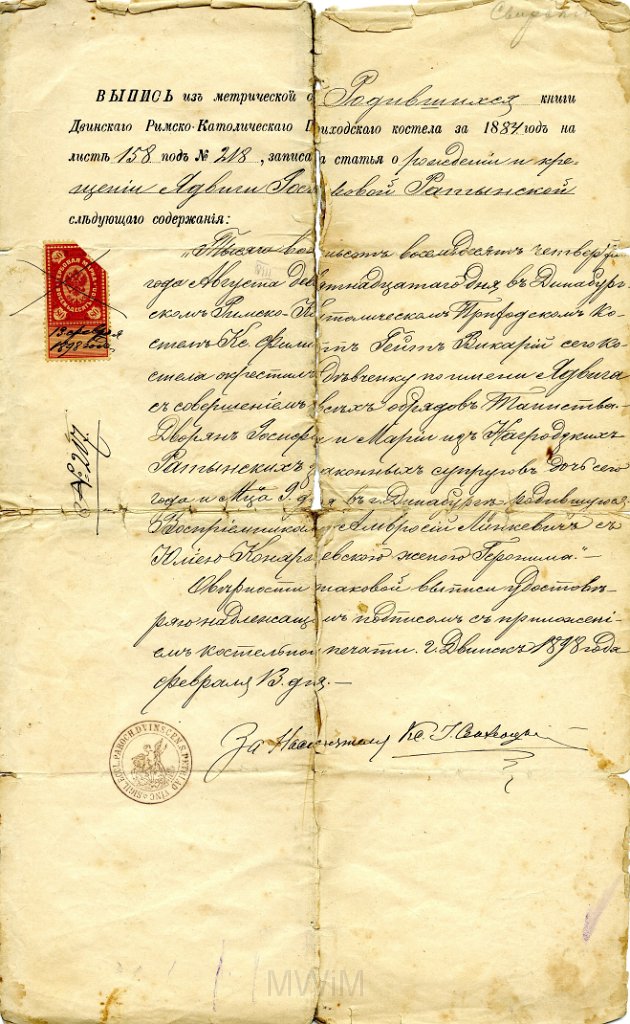 ВЫПИСЬ изъ метрической о Родившихся книги
Двинскаго Римско-Католическаго Приходского костела за 1884 годъ на
листѣ 158 подъ № 218, записана статья о рожденіи и кре-
щеніи Ядвиги Ратынской
слѣдующаго содержанія:
„Тысяча восьмсотъ восемьдесятъ четвертаго
года Августа девятнадцатаго дня въ Динабург-
скомъ Римско-Католическомъ Приходскомъ Ко-
стелѣ Кс. Викарій сего ко-
стела окрестилъ дѣвченку по имени Ядвига
съ совершеніемъ всѣхъ обрядовъ Таинства
Дворянъ Іосифа и Маріи изъ Нагродзкихъ
Ратынскихъ законныхъ супруговъ дочь сего
года и Мца 9. дня въ г. Динабургѣ родившуюся
Воспріемниками Амвросій Линкевичъ съ
Юліею женою Геронима."—
О вѣрности таковой выписи удостовѣ-
ряю надлежащимъ подписомъ съ приложені-
емъ костельной печати. г. Двинскъ 1898 года
февраля 13. дня.—
За Настоятеля Кс. І.
ГЕРБОВАЯ МАРКА
13 февраля
1898 года
№ 207.
SIGIL. ECCL. PAROCH. DVINSCEN. S. PETRI AD VINC.
MWiM